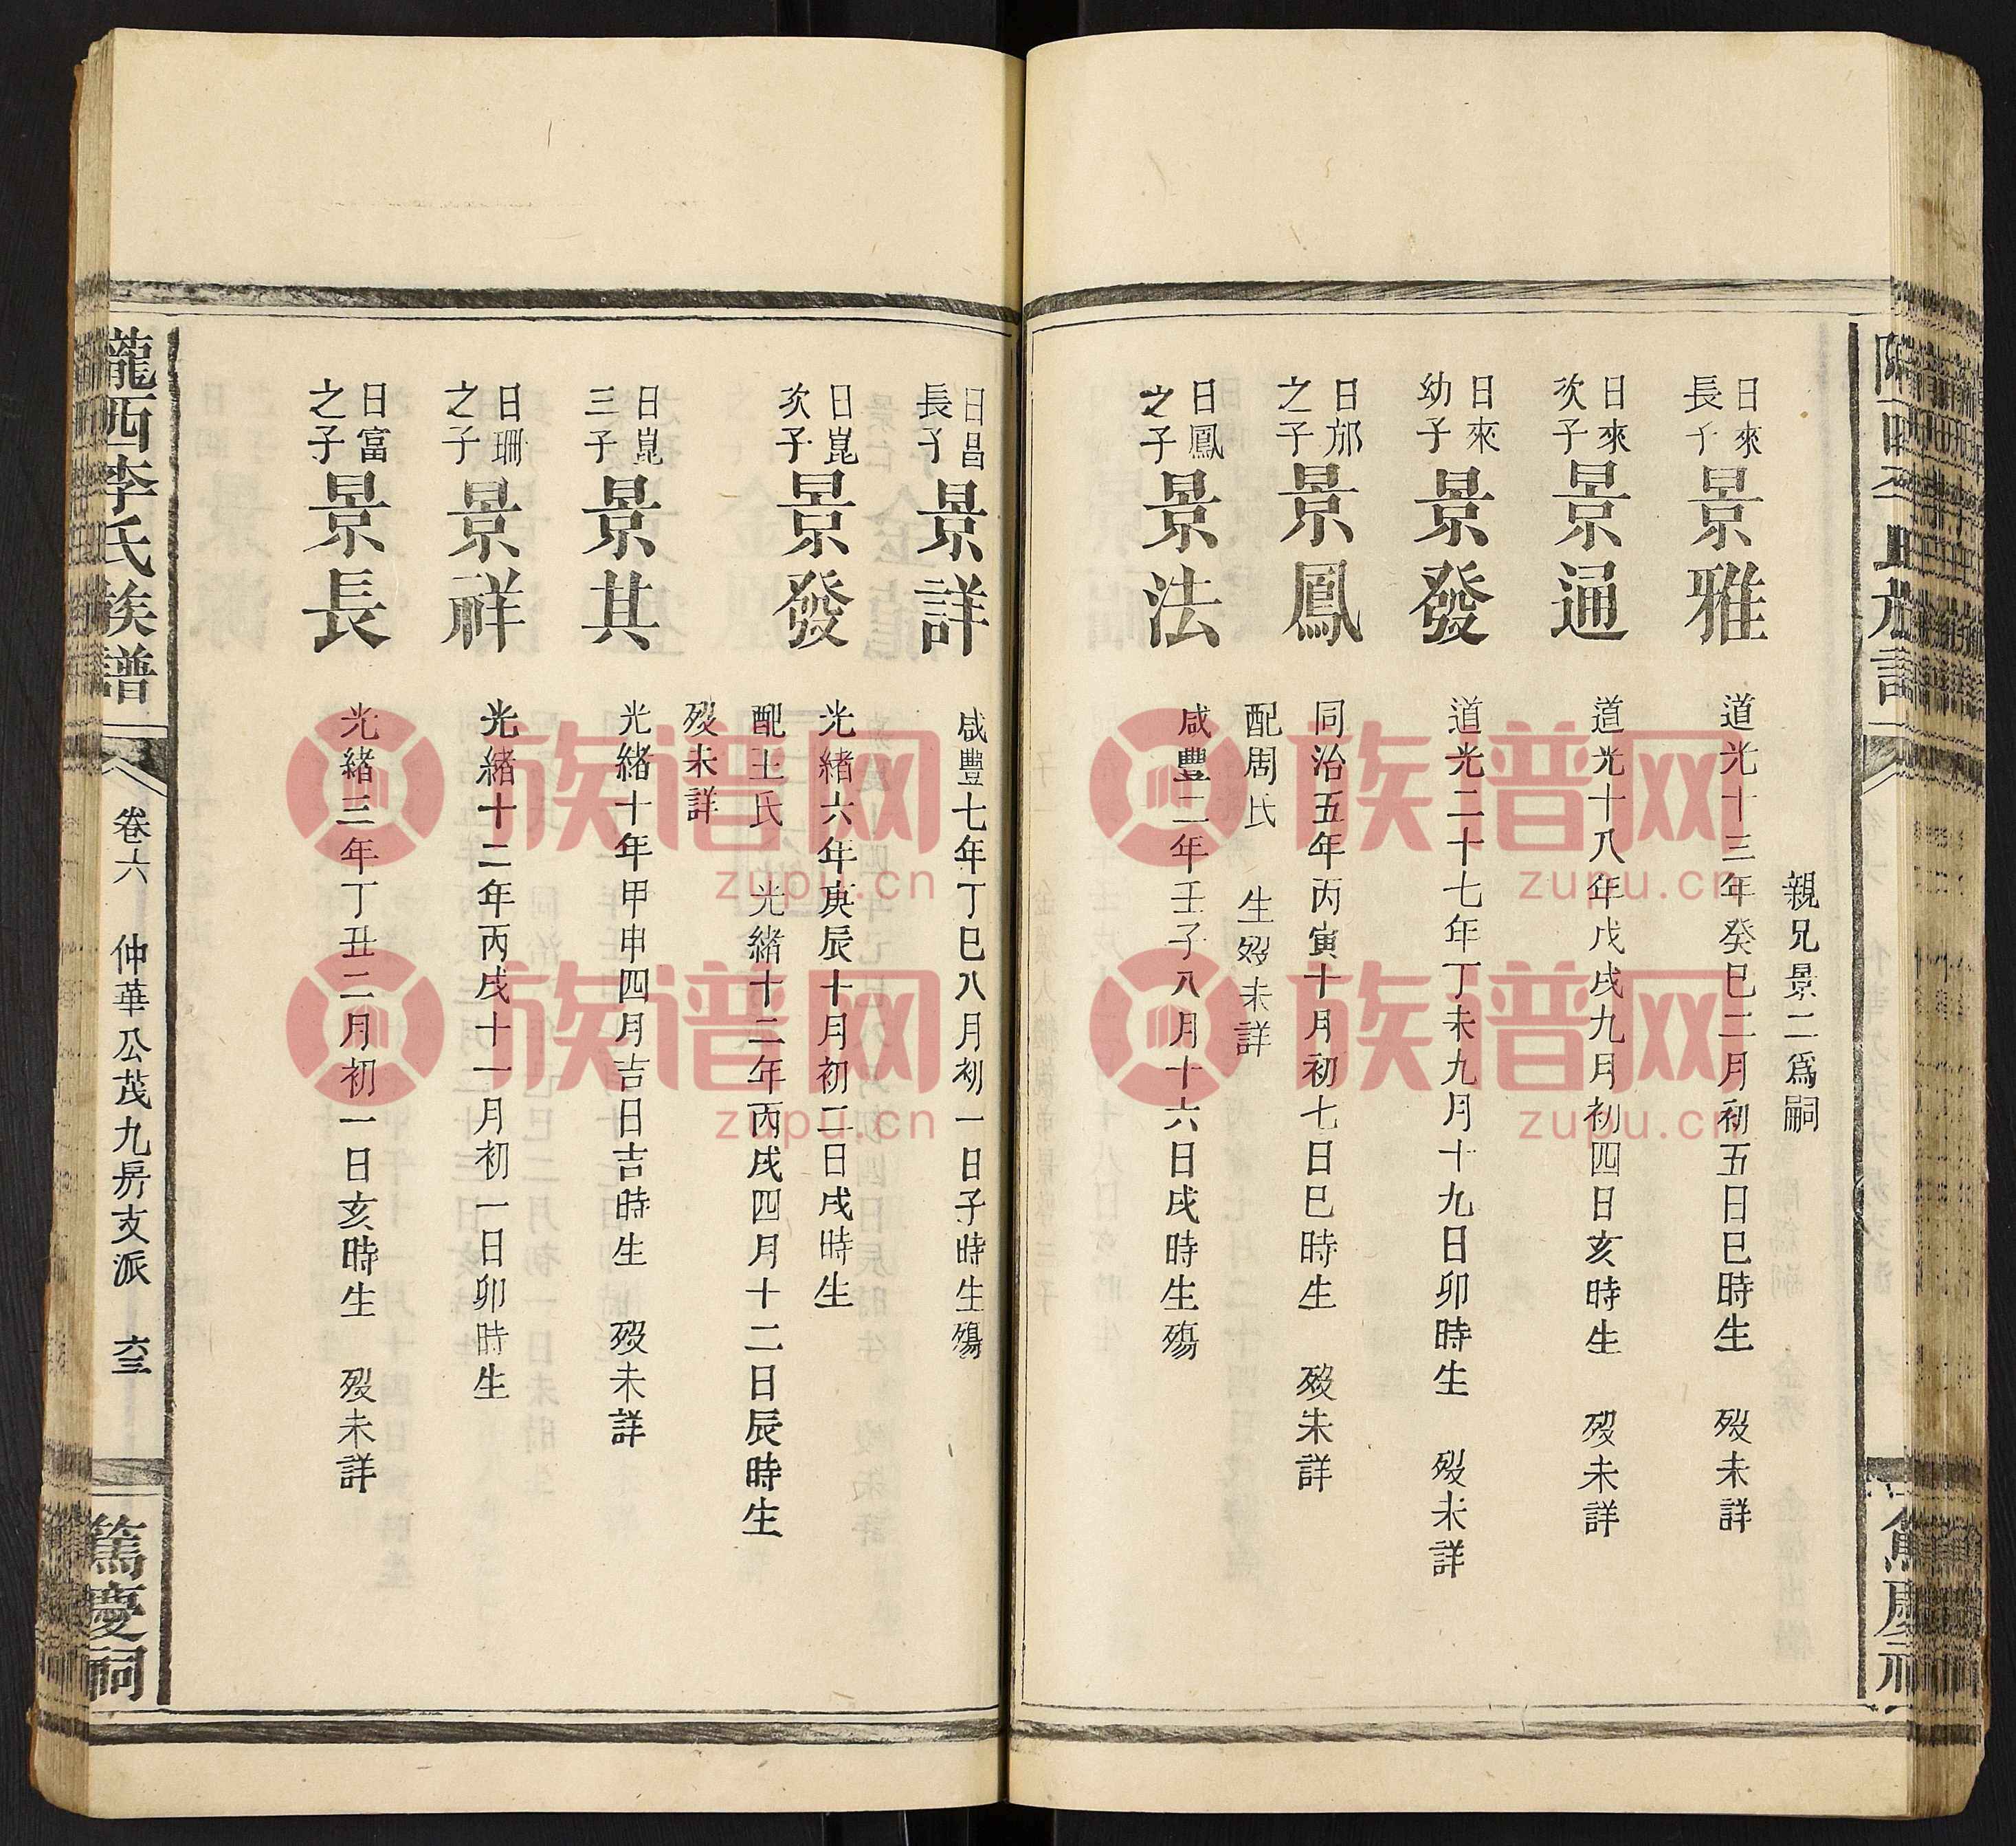 親兄景二爲嗣
日來長子 景雅 道光十三年癸巳二月初五日巳時生 歿未詳
日來次子 景通 道光十八年戊戌九月初四日亥時生 歿未詳
日來幼子 景發 道光二十七年丁未九月十九日卯時生 歿未詳
日邡之子 景鳳 同治五年丙寅十月初七日巳時生 歿未詳
配周氏 生歿未詳
日鳳之子 景法 咸豐二年壬子八月十六日戌時生殤
日昌長子 景詳 咸豐七年丁巳八月初一日子時生殤
日崑次子 景發 光緒六年庚辰十月初二日戌時生
配王氏 光緒十二年丙戌四月十二日辰時生
歿未詳
日崑三子 景其 光緒十年甲申四月吉日吉時生 歿未詳
日珊之子 景祥 光緒十二年丙戌十一月初一日卯時生
日富之子 景長 光緒三年丁丑二月初一日亥時生 歿未詳
隴西李氏族譜 卷六 仲華公茂九房支派 六三 篤慶祠
族谱网
zupu.cn
族谱网
zupu.cn
族谱网
zupu.cn
族谱网
zupu.cn